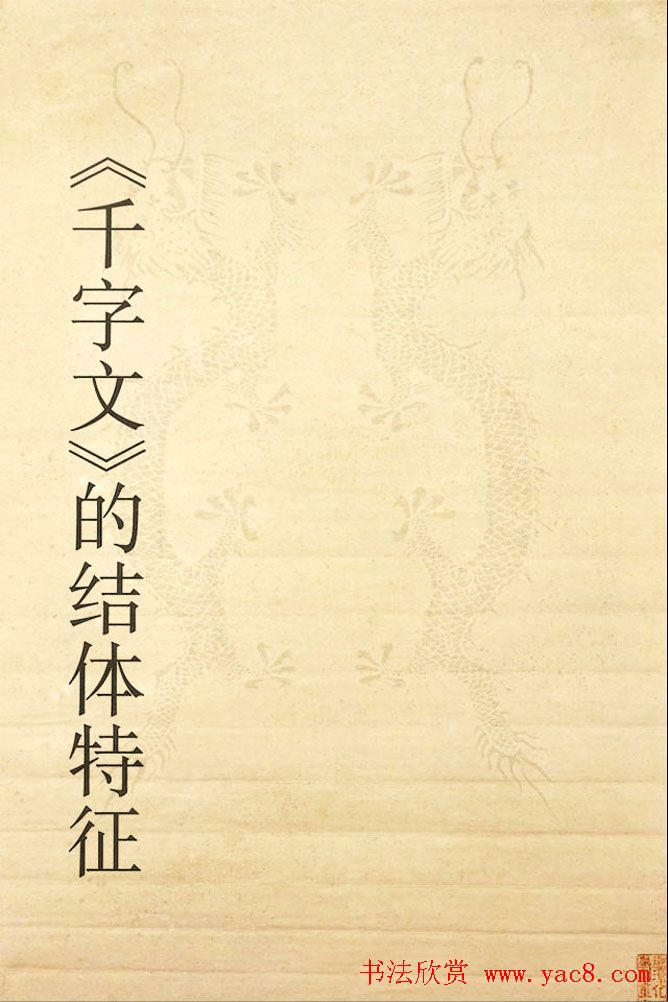 《千字文》的结体特征
书法欣赏 www.yac8.com